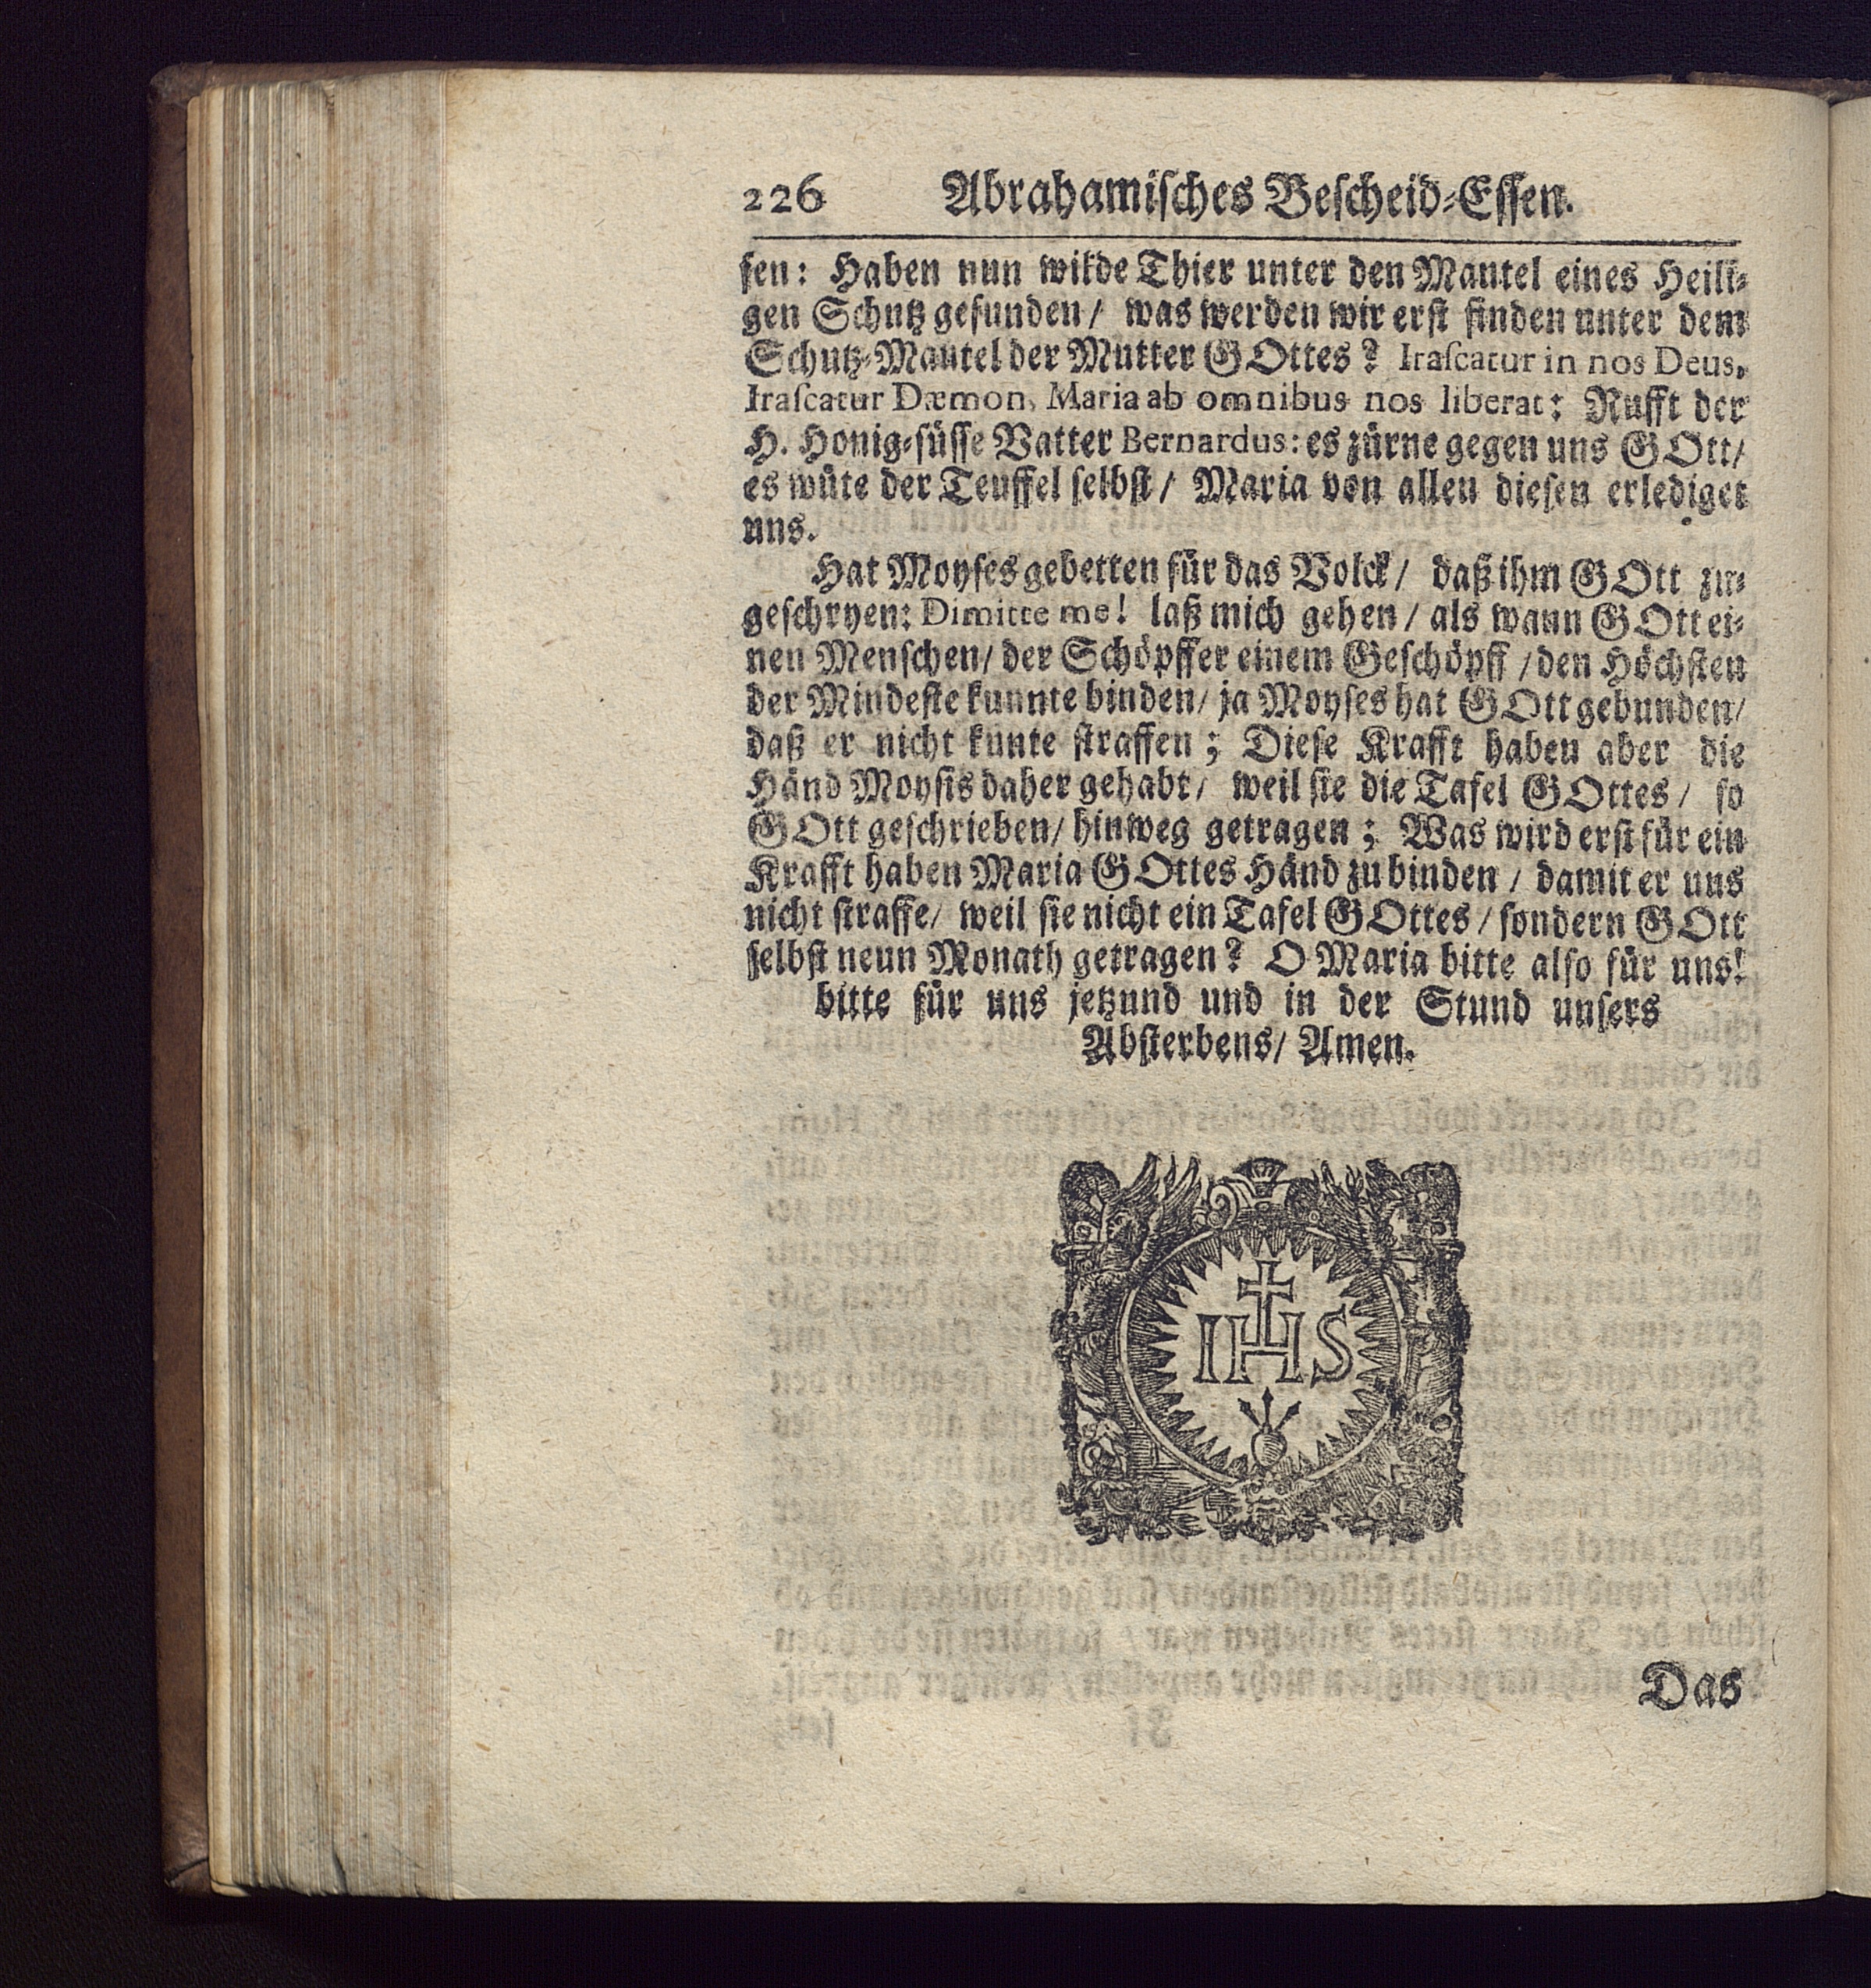 226 Abrahamisches Bescheid-Essen.
sen: Haben nun wilde Thier unter den Mantel eines Heili-
gen Schutz gefunden/ was werden wir erst finden unter dem
Schutz-Mantel der Mutter GOttes? Irascatur in nos Deus,
Irascatur Dæmon, Maria ab omnibus nos liberat: Rufft der
H. Honig-süsse Vatter Bernardus: es zürne gegen uns GOtt/
es wüte der Teuffel selbst/ Maria von allen diesen erlediget
uns.
Hat Moyses gebetten für das Volck/ daß ihm GOtt zu-
geschryen: Dimitte me! laß mich gehen/ als wann GOtt ei-
nen Menschen/ der Schöpffer einem Geschöpff/ den Höchsten
der Mindeste kunnte binden/ ja Moyses hat GOtt gebunden/
daß er nicht kunte straffen; Diese Krafft haben aber die
Händ Moysis daher gehabt/ weil sie die Tafel GOttes/ so
GOtt geschrieben/ hinweg getragen; Was wird erst für ein
Krafft haben Maria GOttes Händ zu binden/ damit er uns
nicht straffe/ weil sie nicht ein Tafel GOttes/ sondern GOtt
selbst neun Monath getragen? O Maria bitte also für uns!
bitte für uns jetzund und in der Stund unsers
Absterbens/ Amen.
IHS
Das